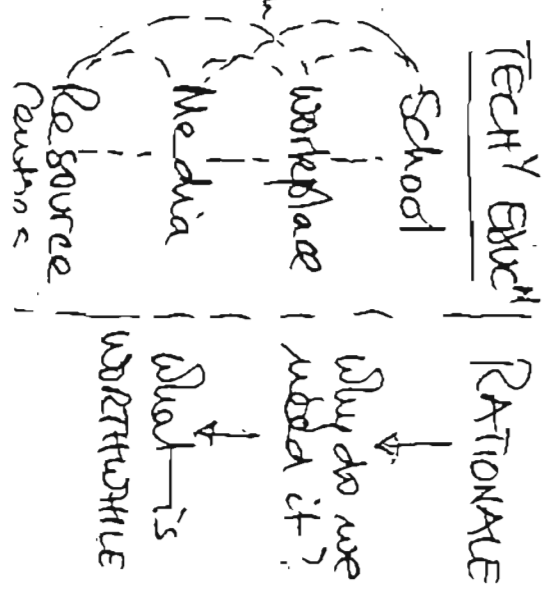 TECHY EDUCN
School
workplace
Media
Resource
Centres
RATIONALE
Why do we
need it?
What is
WORTHWHILE